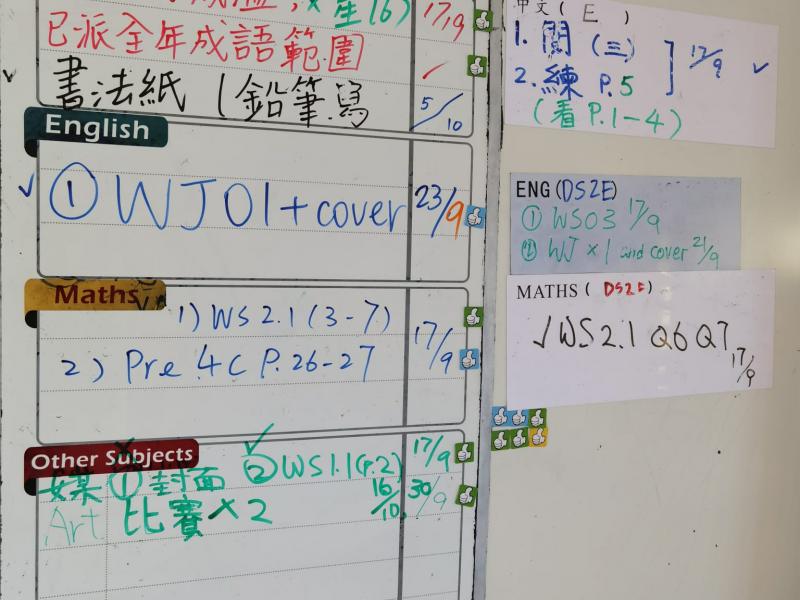 星(6) 17/9
已派全年成語範圍
書法紙 (鉛筆寫 5/10
English
① WJ01+cover 23/9
Maths
1) WS 2.1 (3-7) 17/9
2) Pre 4C P.26-27
Other Subjects
媒 ① 封面 ② WS1.1(P.2) 17/9
Art 比賽×2 16/10 30/9
中文( E )
1. 閱 (三) 17/9
2. 練 P.5
(看 P.1-4)
ENG(DS2E)
① WS03 17/9
② WJ ×1 and cover 21/9
MATHS ( DS2E)
√WS 2.1 Q6 Q7 17/9